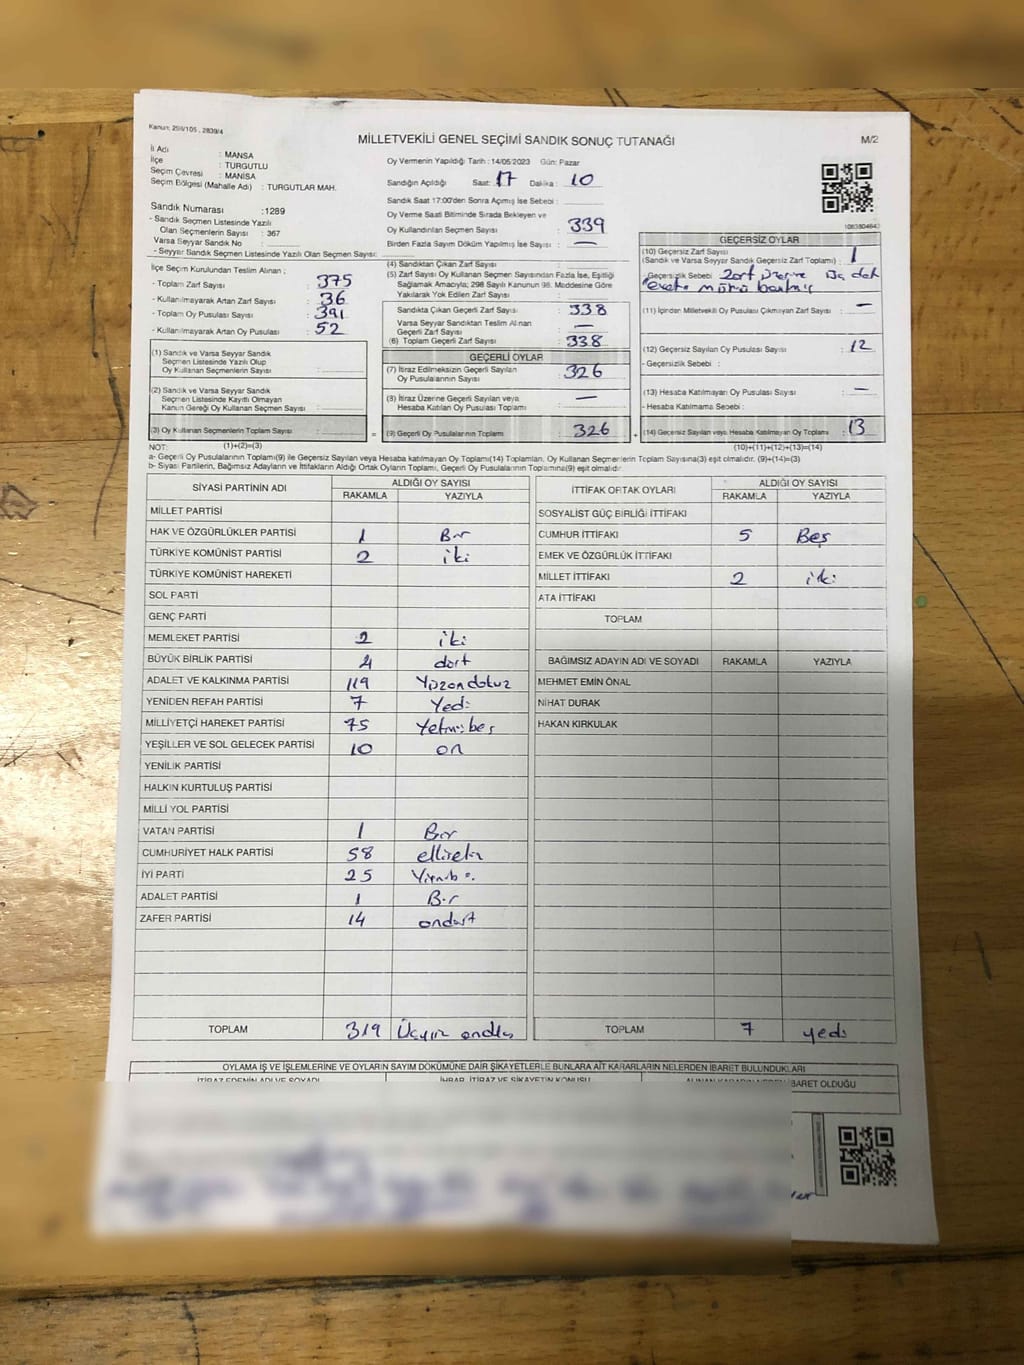 Kanun: 298/105 , 2839/4
MİLLETVEKİLİ GENEL SEÇİMİ SANDIK SONUÇ TUTANAĞI
M/2
İl Adı : MANİSA
İlçe : TURGUTLU
Seçim Çevresi : MANİSA
Seçim Bölgesi (Mahalle Adı) : TURGUTLAR MAH.
Sandık Numarası :1289
- Sandık Seçmen Listesinde Yazılı
Olan Seçmenlerin Sayısı : 367
Varsa Seyyar Sandık No :
- Seyyar Sandık Seçmen Listesinde Yazılı Olan Seçmen Sayısı:
İlçe Seçim Kurulundan Teslim Alınan ;
- Toplam Zarf Sayısı : 375
- Kullanılmayarak Artan Zarf Sayısı : 36
- Toplam Oy Pusulası Sayısı : 391
- Kullanılmayarak Artan Oy Pusulası : 52
(1) Sandık ve Varsa Seyyar Sandık
Seçmen Listesinde Yazılı Olup
Oy Kullanan Seçmenlerin Sayısı :
(2) Sandık ve Varsa Seyyar Sandık
Seçmen Listesinde Kayıtlı Olmayan
Kanun Gereği Oy Kullanan Seçmen Sayısı :
(3) Oy Kullanan Seçmenlerin Toplam Sayısı :
Oy Vermenin Yapıldığı Tarih : 14/05/2023 Gün: Pazar
Sandığın Açıldığı Saat: 17 Dakika : 10
Sandık Saat 17:00'den Sonra Açılmış İse Sebebi :
Oy Verme Saati Bitiminde Sırada Bekleyen ve
Oy Kullandırılan Seçmen Sayısı : 339
Birden Fazla Sayım Döküm Yapılmış İse Sayısı : —
(4) Sandıktan Çıkan Zarf Sayısı :
(5) Zarf Sayısı Oy Kullanan Seçmen Sayısından Fazla İse, Eşitliği
Sağlamak Amacıyla; 298 Sayılı Kanunun 98. Maddesine Göre
Yakılarak Yok Edilen Zarf Sayısı :
Sandıkta Çıkan Geçerli Zarf Sayısı : 338
Varsa Seyyar Sandıktan Teslim Alınan
Geçerli Zarf Sayısı : —
(6) Toplam Geçerli Zarf Sayısı : 338
GEÇERLİ OYLAR
(7) İtiraz Edilmeksizin Geçerli Sayılan
Oy Pusulalarının Sayısı : 326
(8) İtiraz Üzerine Geçerli Sayılan veya
Hesaba Katılan Oy Pusulası Toplamı : —
= (9) Geçerli Oy Pusulalarının Toplamı : 326
GEÇERSİZ OYLAR
(10) Geçersiz Zarf Sayısı
(Sandık ve Varsa Seyyar Sandık Geçersiz Zarf Toplamı) : 1
- Geçersizlik Sebebi : Zarf üzerine
mührü
(11) İçinden Milletvekili Oy Pusulası Çıkmayan Zarf Sayısı : —
(12) Geçersiz Sayılan Oy Pusulası Sayısı : 12
- Geçersizlik Sebebi :
(13) Hesaba Katılmayan Oy Pusulası Sayısı : —
- Hesaba Katılmama Sebebi :
+ (14) Geçersiz Sayılan veya Hesaba Katılmayan Oy Toplamı : 13
NOT: (1)+(2)=(3)
(10)+(11)+(12)+(13)=(14)
a- Geçerli Oy Pusulalarının Toplamı(9) ile Geçersiz Sayılan veya Hesaba katılmayan Oy Toplamı(14) Toplamları, Oy Kullanan Seçmenlerin Toplam Sayısına(3) eşit olmalıdır. (9)+(14)=(3)
b- Siyasi Partilerin, Bağımsız Adayların ve İttifakların Aldığı Ortak Oyların Toplamı, Geçerli Oy Pusulalarının Toplamına(9) eşit olmalıdır.
SİYASİ PARTİNİN ADI ALDIĞI OY SAYISI
RAKAMLA YAZIYLA
MİLLET PARTİSİ
HAK VE ÖZGÜRLÜKLER PARTİSİ 1 Bir
TÜRKİYE KOMÜNİST PARTİSİ 2 iki
TÜRKİYE KOMÜNİST HAREKETİ
SOL PARTİ
GENÇ PARTİ
MEMLEKET PARTİSİ 2 iki
BÜYÜK BİRLİK PARTİSİ 4 dört
ADALET VE KALKINMA PARTİSİ 119 Yüzondokuz
YENİDEN REFAH PARTİSİ 7 Yedi
MİLLİYETÇİ HAREKET PARTİSİ 75 Yetmişbeş
YEŞİLLER VE SOL GELECEK PARTİSİ 10 on
YENİLİK PARTİSİ
HALKIN KURTULUŞ PARTİSİ
MİLLİ YOL PARTİSİ
VATAN PARTİSİ 1 Bir
CUMHURİYET HALK PARTİSİ 58 ellisekiz
İYİ PARTİ 25 Yirmibeş
ADALET PARTİSİ 1 Bir
ZAFER PARTİSİ 14 ondört
TOPLAM 319 Üçyüz ondokuz
İTTİFAK ORTAK OYLARI ALDIĞI OY SAYISI
RAKAMLA YAZIYLA
SOSYALİST GÜÇ BİRLİĞİ İTTİFAKI
CUMHUR İTTİFAKI 5 Beş
EMEK VE ÖZGÜRLÜK İTTİFAKI
MİLLET İTTİFAKI 2 iki
ATA İTTİFAKI
TOPLAM
BAĞIMSIZ ADAYIN ADI VE SOYADI RAKAMLA YAZIYLA
MEHMET EMİN ÖNAL
NİHAT DURAK
HAKAN KIRKULAK
TOPLAM 7 yedi
OYLAMA İŞ VE İŞLEMLERİNE VE OYLARIN SAYIM DÖKÜMÜNE DAİR ŞİKAYETLERLE BUNLARA AİT KARARLARIN NELERDEN İBARET BULUNDUKLARI
İTİRAZ EDENİN ADI VE SOYADI İHBAR, İTİRAZ VE ŞİKAYETİN KONUSU ALINAN KARARIN NEDEN İBARET OLDUĞU